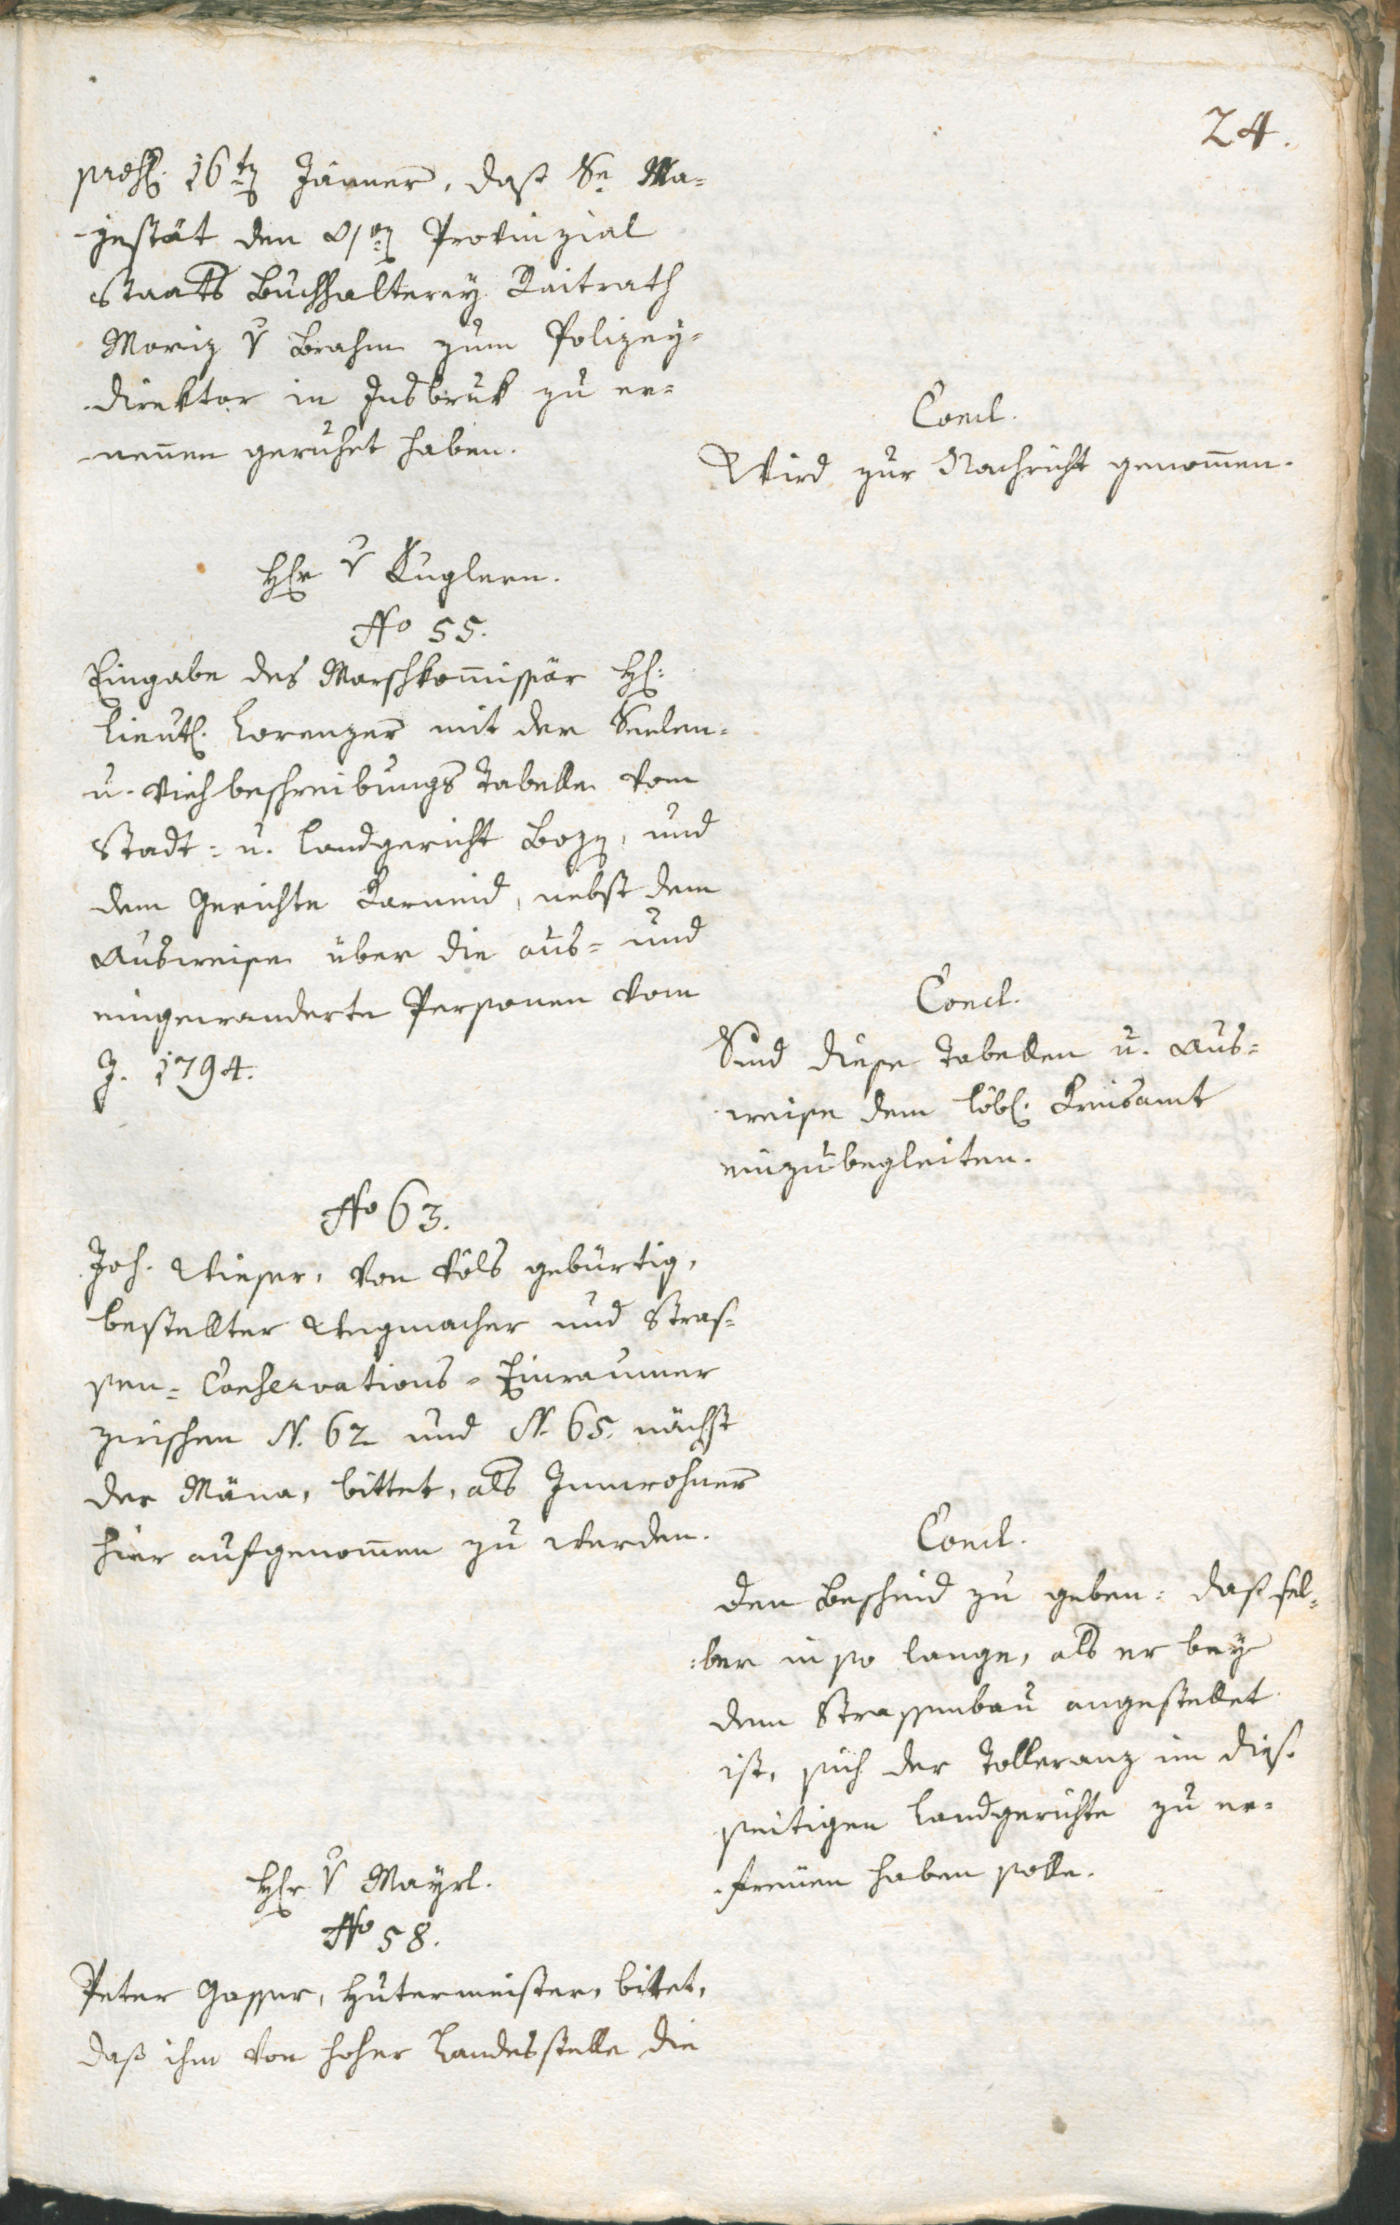 24.
praes. 16ten Jänner, daß Se Ma=
=jestät den Provinzial
Staats Buchhalterey Raitrath
Moriz v Brahm zum Polizey=
direktor in Insbruk zu er=
=nen̄en geruhet haben.
Concl.
Wird zur Nachricht genom̄en.
Hr v Kuglern.
No 55.
Eingabe des Marschkom̄issär H:
Lieut. Lorenzer mit der Seelen=
u. Viehbeschreibungs Tabelle vom
Stadt= u. Landgericht Bozen, und
dem Gerichte Karneid, nebst dem
Ausweise über die aus= und
eingewanderte Personen vom
J. 1794.
Concl.
Sind diese Tabellen u. Aus=
weise dem löbl. Kreisamt
einzubegleiten.
No 63.
Joh. Wieser, von Völs gebürtig,
bestellter Wegmacher und Stras=
sen= Conservations=Einraumer
zwischen N. 62 und N. 65. nächst
der Mäna, bittet, als Innwohner
hier aufgenom̄en zu werden.
Concl.
Den Bescheid zu geben: daß sel=
=ber in so lange, als er bey
dem Strassenbau angestellet
ist, sich der Tolleranz im dies=
seitigen Landgerichte zu er=
=freuen haben solle.
Hr v Mayrl.
No 58.
Peter Gasser, Hutermeister, bittet,
daß ihm von hoher Landesstelle die